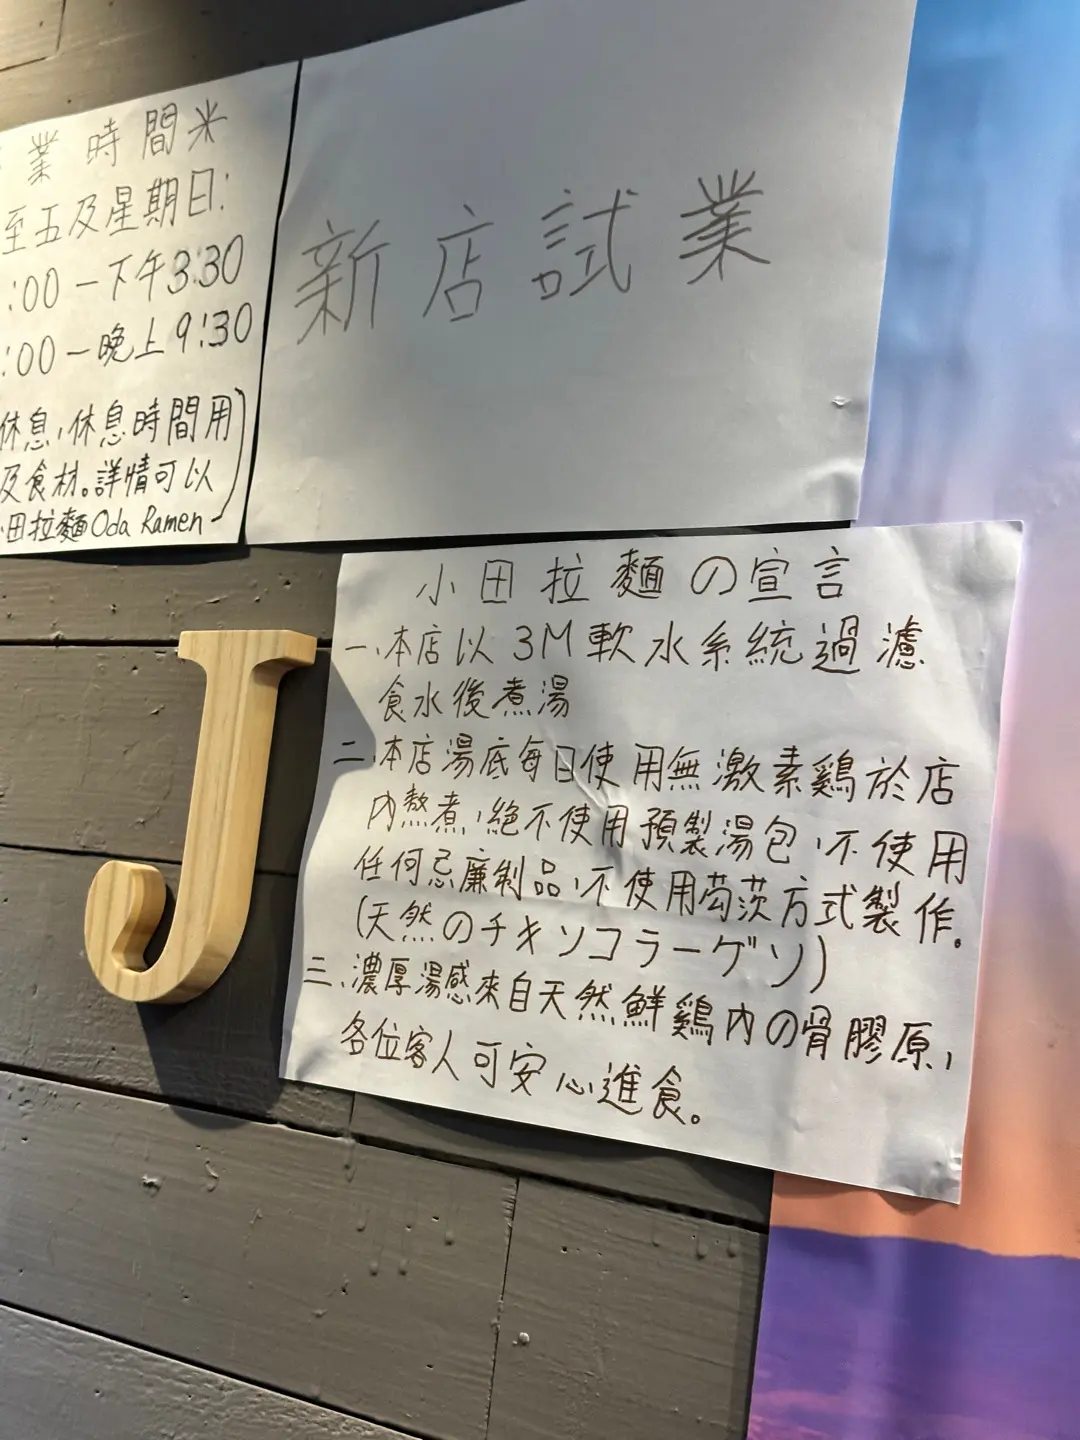 業時間米
至五及星期日:
:00－下午3:30
:00－晚上9:30
休息,休息時間用
及食材。詳情可以
小田拉麵Oda Ramen
新店試業
小田拉麵の宣言
一、本店以3M軟水系統過濾
食水後煮湯
二、本店湯底每日使用無激素鷄於店
內熬煮,絕不使用預製湯包,不使用
任何忌廉制品,不使用芶茨方式製作。
(天然のチキソコラーゲソ)
三、濃厚湯感來自天然鮮鷄內の骨膠原,
各位客人可安心進食。
J